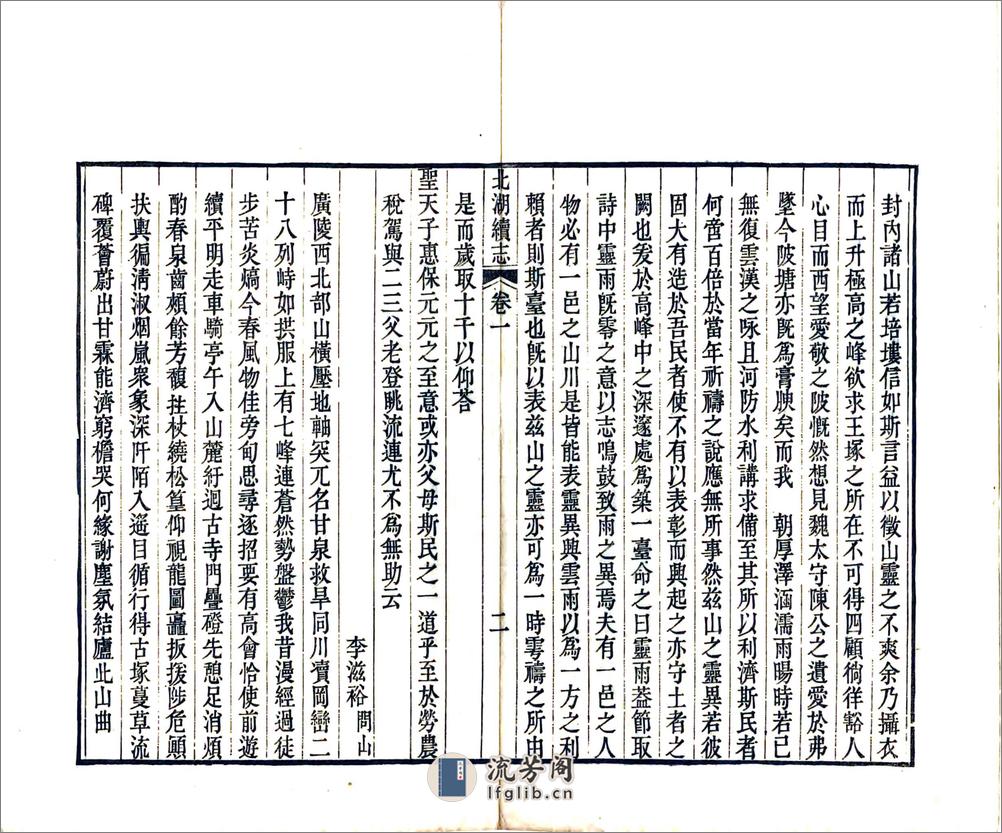 封內諸山若培塿信如斯言益以徵山靈之不爽余乃攝衣
而上升極高之峰欲求王塚之所在不可得四顧徜徉豁人
心目而西望愛敬之陂慨然想見魏太守陳公之遺愛於弗
墜今陂塘亦旣爲膏腴矣而我　朝厚澤涵濡雨暘時若已
無復雲漢之咏且河防水利講求備至其所以利濟斯民者
何啻百倍於當年祈禱之說應無所事然茲山之靈異若彼
固大有造於吾民者使不有以表彰而興起之亦守土者之
闕也爰於高峰中之深邃處爲築一臺命之曰靈雨葢節取
詩中靈雨旣零之意以志鳴鼓致雨之異焉夫有一邑之人
物必有一邑之山川是皆能表靈異興雲雨以爲一方之利
賴者則斯臺也旣以表茲山之靈亦可爲一時雩禱之所由
北湖續志　卷一　二
是而歲取十千以仰荅
聖天子惠保元元之至意或亦父母斯民之一道乎至於勞農
稅駕與二三父老登眺流連尤不爲無助云
李滋裕　問山
廣陵西北部山橫壓地軸突兀名甘泉救旱同川瀆岡巒二
十八列峙如拱服上有七峰連蒼然勢盤鬱我昔漫經過徒
步苦炎熇今春風物佳旁甸思尋逐招要有高會恰使前遊
續平明走車騎亭午入山麓紆迴古寺門疊磴先憩足消煩
酌春泉齒頰餘芳馥拄杖繞松篁仰視龍圖矗扳援陟危顛
扶輿徧淸淑烟嵐衆象深阡陌入遥目循行得古塚蔓草流
碑覆薈蔚出甘霖能濟窮檐哭何緣謝塵氛結廬此山曲
流芳阁
lfglib.cn